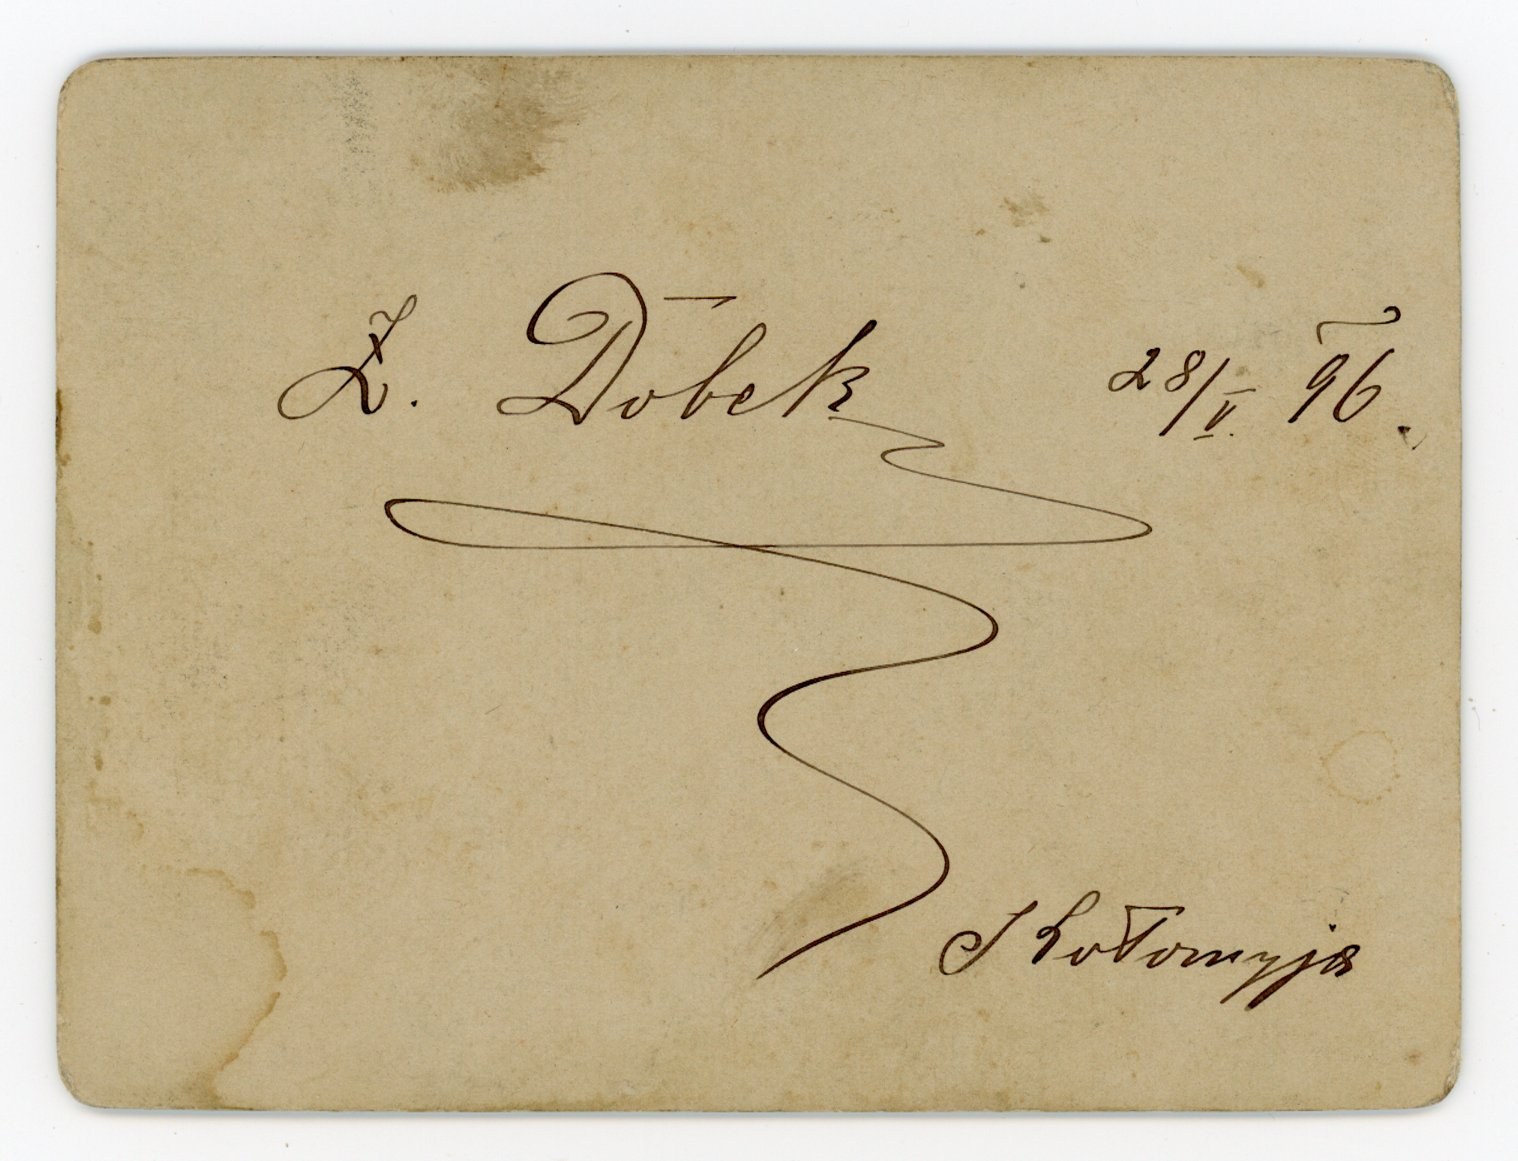 Ż. Dobek 28/V. 96.
Kołomyja